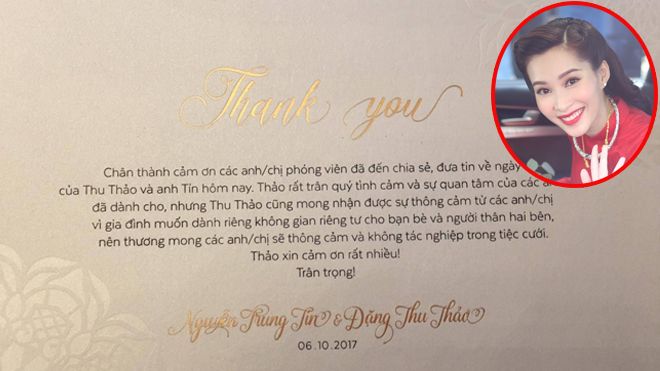 Thank you
Chân thành cảm ơn các anh/chị phóng viên đã đến chia sẻ, đưa tin về ngày
của Thu Thảo và anh Tín hôm nay. Thảo rất trân quý tình cảm và sự quan tâm của các
đã dành cho, nhưng Thu Thảo cũng mong nhận được sự thông cảm từ các anh/chị
vì gia đình muốn dành riêng không gian riêng tư cho bạn bè và người thân hai bên,
nên thương mong các anh/chị sẽ thông cảm và không tác nghiệp trong tiệc cưới.
Thảo xin cảm ơn rất nhiều!
Trân trọng!
Nguyễn Trung Tín & Đặng Thu Thảo
06.10.2017